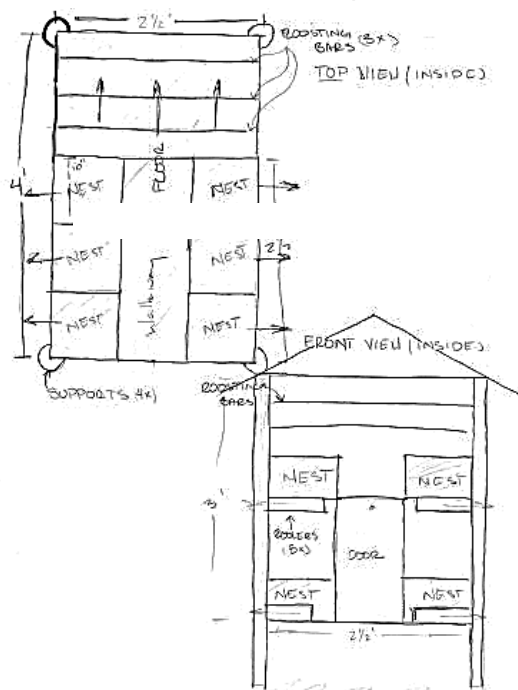 2½'
ROOSTING
BARS (3x)
TOP VIEW (INSIDE)
FLOOR
10"
NEST
NEST
4'
NEST
NEST
walkway
NEST
NEST
SUPPORTS (4x)
FRONT VIEW (INSIDE)
ROOSTING
BARS
NEST
NEST
3'
DOOR
NEST
NEST
2½'